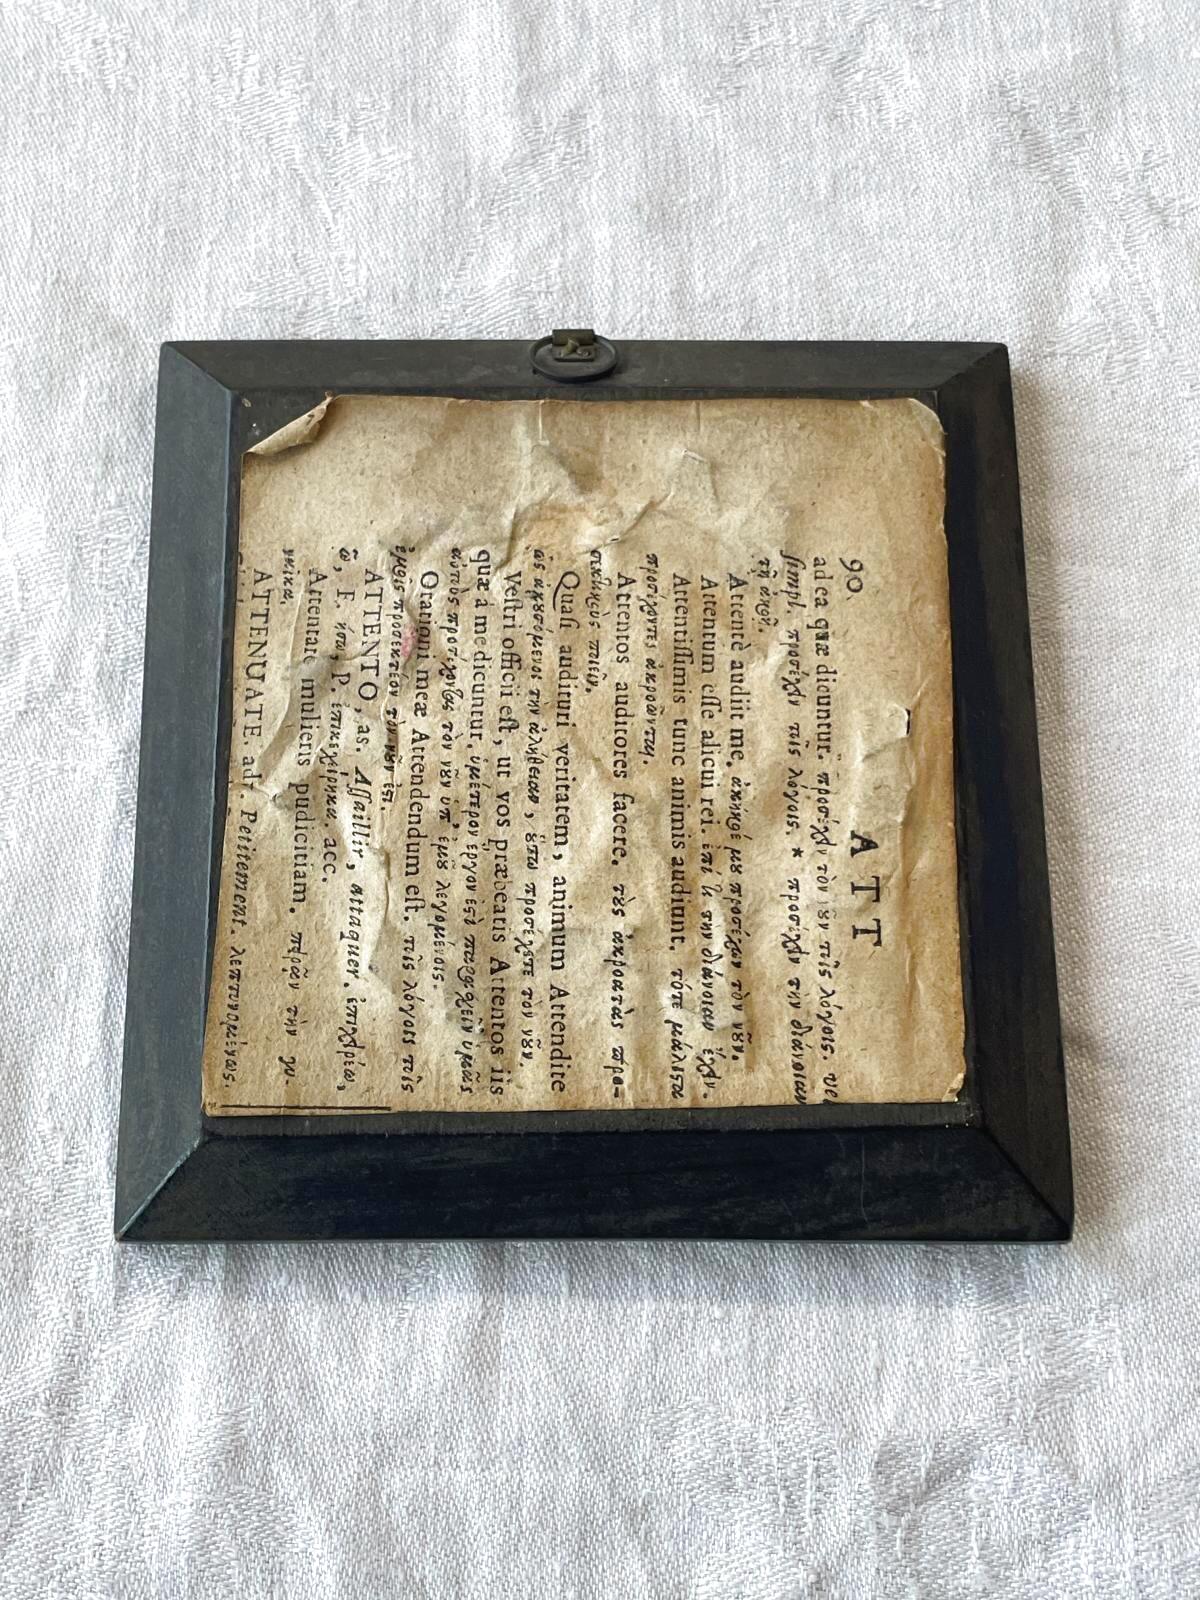 90 ATT
ad ea quæ dicuntur. προσέχειν τὸν νοῦν τοῖς λόγοις. vel
simpl. προσέχειν τοῖς λόγοις. * προσέχειν τὴν διάνοιαν
τῇ ἀκοῇ.
Attentè audiit me. ἀκήκοέ μου προσέχων τὸν νοῦν.
Attentum esse alicui rei. ἐπί τι τὴν διάνοιαν ἔχειν.
Attentissimis tunc animis audiunt. τότε μάλιστα
προσέχοντες ἀκροῶνται.
Attentos auditores facere. τοὺς ἀκροατὰς προ-
σεκτικοὺς ποιεῖν.
Quasi audituri veritatem, animum Attendite
ὡς ἀκουσόμενοι τὴν ἀλήθειαν, οὕτω προσέχετε τὸν νοῦν.
Vestri officii est, ut vos præbeatis Attentos iis
quæ à me dicuntur. ὑμέτερον ἔργον ἐστὶ παρασχεῖν ὑμᾶς
αὐτοὺς προσέχοντας τὸν νοῦν ὑπ' ἐμοῦ λεγομένοις.
Orationi meæ Attendendum est. τοῖς λόγοις τοῖς
ἐμοῖς προσεκτέον τὸν νοῦν ἐστι.
ATTENTO, as. Assaillir, attaquer. ἐπιχειρέω,
ῶ, F. ήσω, P. ἐπικεχείρηκα. acc.
Attentare mulieris pudicitiam. πειρᾶν τὴν γυ-
ναῖκα.
ATTENUATE. adv. Petitement. λεπτυνομένως.